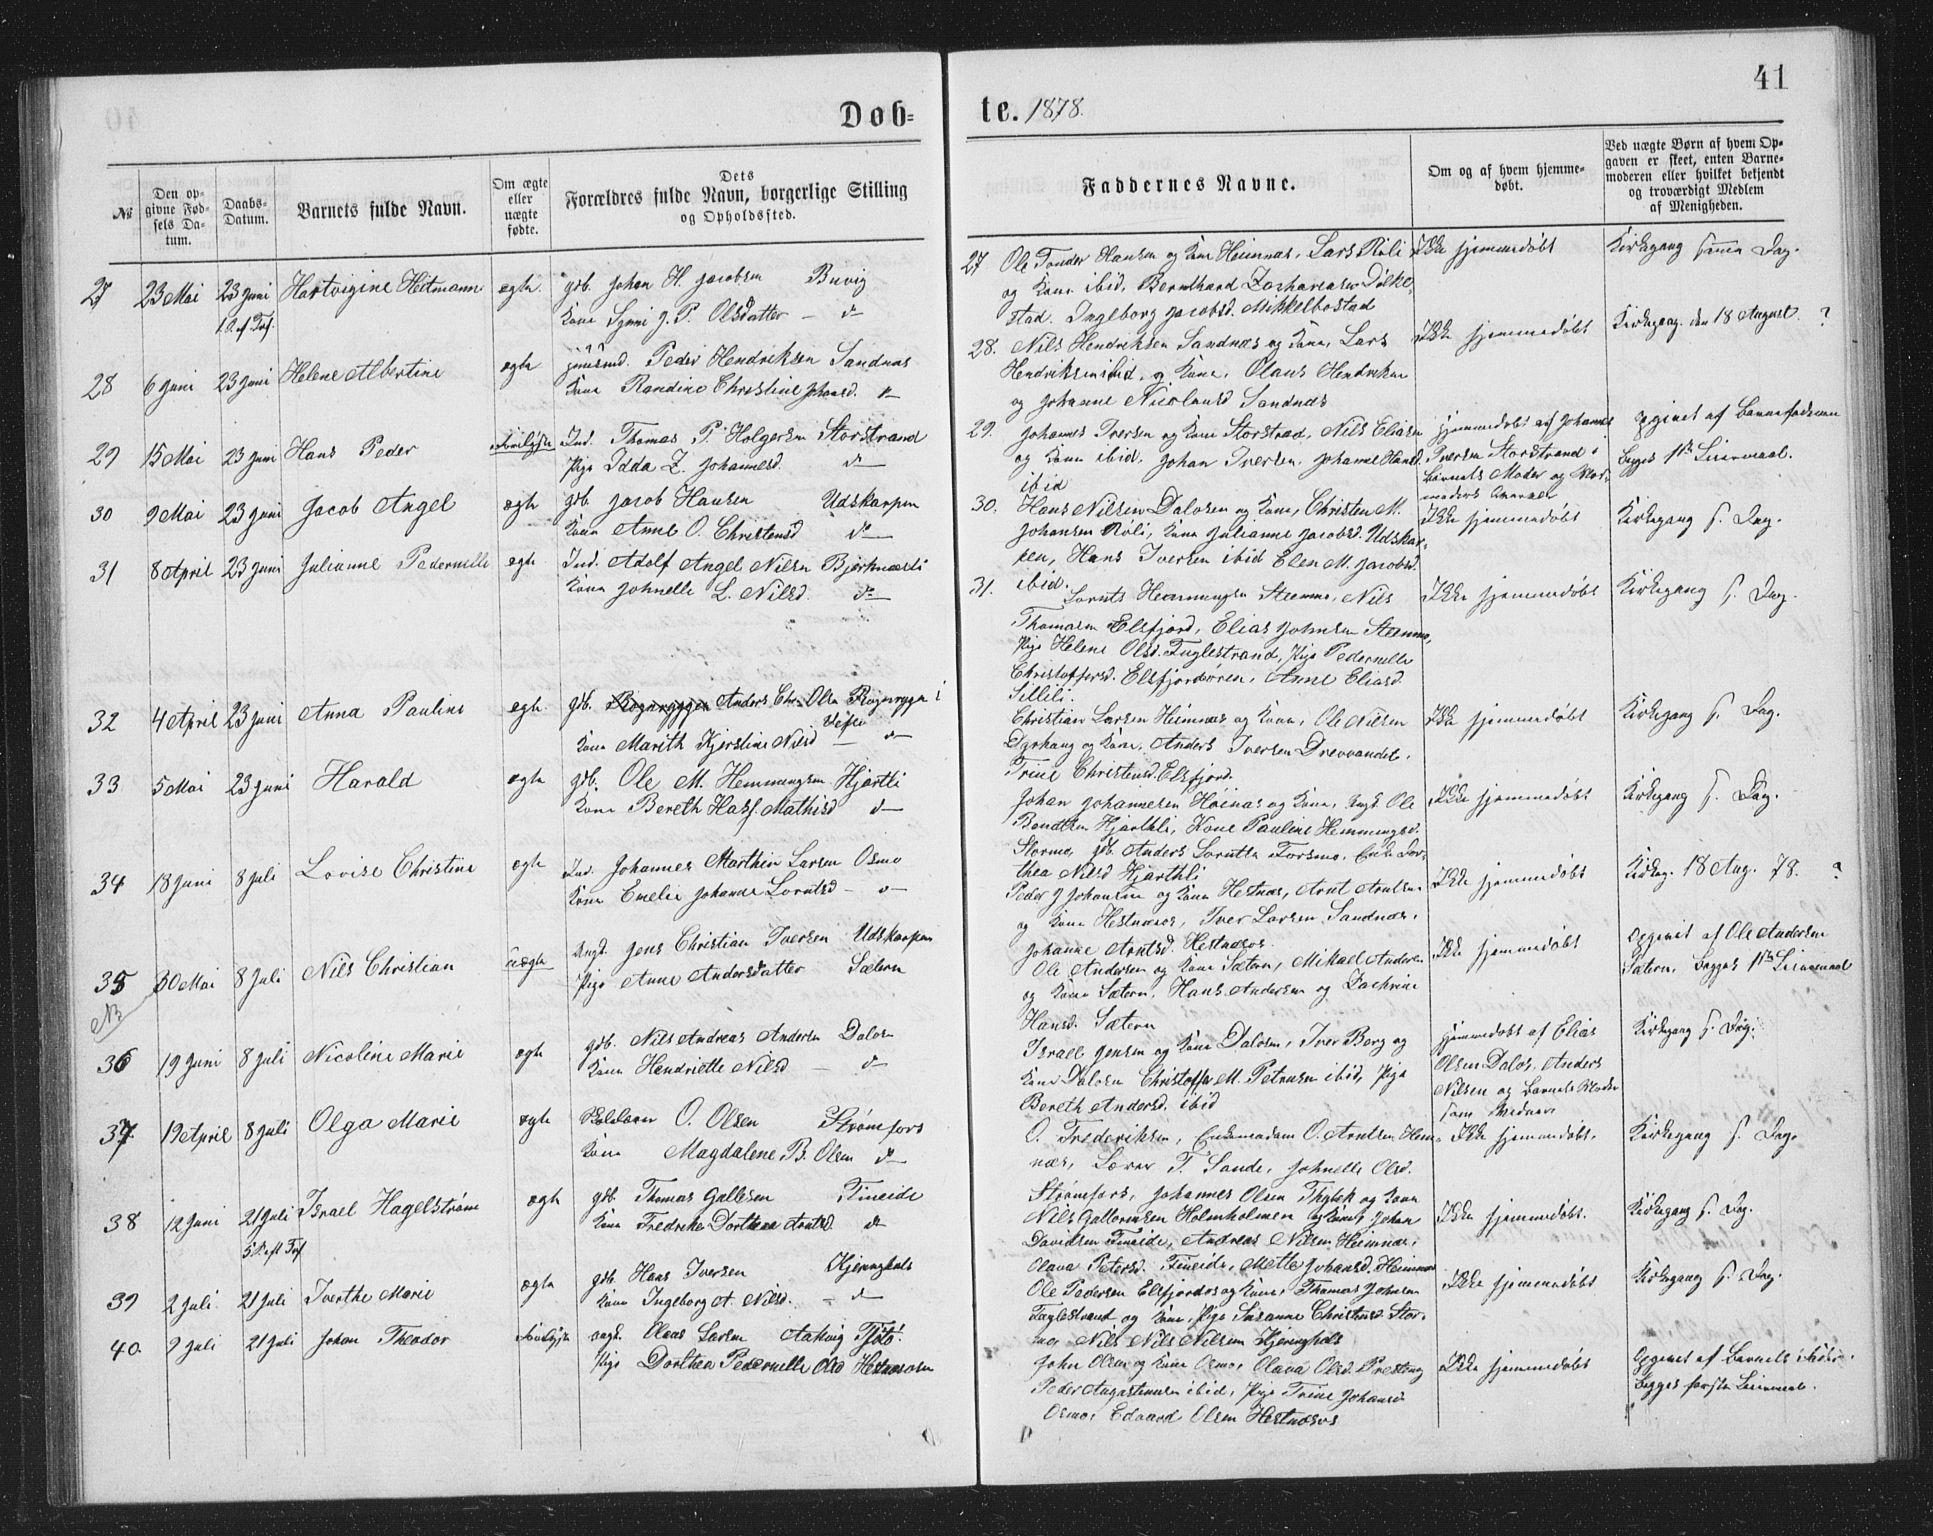 41
Døb=
te. 1878.
№
Den op-
givne Fød-
sels Da-
tum.
Daabs-
Datum.
Barnets fulde Navn.
Om ægte
eller
uægte
fødte.
Dets
Forældres fulde Navn, borgerlige Stilling
og Opholdssted.
Faddernes Navne.
Om og af hvem hjemme-
døbt.
Ved uægte Børn af hvem Op-
gaven er skeet, enten Barne-
moderen eller hvilket bekjendt
og troværdigt Medlem
af Menigheden.
27 23 Mai 23 Juni Hartvigine Heitmann ægte gdb. Johan H. Jacobsen Buvig
Kone Synni J. P. Olsdatter — do
28 6 Juni 23 Juni Helene Albertine ægte Peder Hendriksen Sandnæs
Kone Randine Christine Johansd. do
29 15 Mai 23 Juni Hans Peder Ind. Thomas P. Holgersen Storstrand
Pige Idda Z. Johannesd. do
30 9 Mai 23 Juni Jacob Angel ægte gdb. Jacob Hansen Udskarpen
Kone Anne O. Christensd do
31 8 April 23 Juni Julianne Pedernille ægte Ind. Adolf Angel Nilsen Bjerknæsli
Kone Johnelle L. Nilsd. do
32 4 April 23 Juni Anna Pauline ægte gdb. Anders Chr. Olsen Røgnryggen i
Kone Marith Kjerstine Nilsd — do
33 5 Mai 23 Juni Harald ægte gdb. Ole M. Hemmingsen Hjartli
Kone Bereth Hass. Mathisd do
34 18 Juni 8 Juli Lovise Christine ægte Ind. Johannes Marthin Larsen Osmo
Kone Emelie Johanna Lorntsd — do
35 30 Mai 8 Juli Nils Christian uægte Ungk. Jens Christian Iversen Udskarpen
Pige Anne Andersdatter Sætern
NB
36 19 Juni 8 Juli Nicoline Marie ægte gdb. Nils Andreas Andersen Dalosen
Kone Henriette Nilsd — do
37 19 April 8 Juli Olga Marie ægte O. Olsen Strømfors
Kone Magdalene B. Olsen do
38 12 Juni 21 Juli Israel Hagelstrøm ægte gdb. Thomas Gallesen Fineide
5 S. eft Tref. Kone Fredrikke Dorthea Arntsd do
39 2 Juli 21 Juli Iverthe Marie ægte gdb. Hans Iversen Kjeringhals
Kone Ingeborg A. Nilsd. — do
40. 9 Juli 21 Juli Johan Theodor ungk. Claas Larsen Aakvig Tjøtø
Pige Dorthea Pedernille Olsd Hestnæsosen
27 Ole Tonder Hansen og Kone Hemnæs, Lars Røli Ikke hjemmedøbt Kirkegang samme Dag.
og Kone ibid. Bernthard Zachariasen Dilke-
stad. Ingeborg Jacobsd. Mikkelbostad
28. Nils Hendriksen Sandnæs og Kone, Lars Ikke hjemmedøbt Kirkegang den 18 August. ?
Hendriksen ibid. og Kone, Olaus Hendriksen
og Johanne Nicolausd Sandnæs
29. Johannes Iversen og Kone Storstrand, Nils Eliasen Hjemmedøbt af Johannes opgivet af Barnefaderen
og Kone ibid. Johan Iversen. Johanne Hansd. Iversen Storstrand, begges 1ste Leiermaal.
ibid Barnets Moder og
30. Hans Nilsen Dalosen og Kone, Christen M. Ikke hjemmedøbt Kirkegang s. Dag.
Johansen Røli, Kone Julianne Jacobsd. Udskar-
pen, Hans Iversen ibid Elen M. Jacobsd.
ibid.
31. Lornts Hemmingsen Stenmo, Nils Ikke hjemmedøbt Kirkegang s. Dag.
Thomasen Elsfjord, Elias Johnsen Stenmo,
Pige Helene Olsd. Fuglestrand, Pige Pedernille
Christoffersd. Elsfjordøren, Anne Eliasd.
Lillili
Christian Larsen Hemnæs og Kone, Ole Nilsen Ikke hjemmedøbt Kirkegang s. Dag.
Dyrhaug og Kone, Anders Iversen Drevvandet,
Trine Christensd. Elsfjord.
Johan Johannesen Høinæs og Kone, Ungk Ole Ikke hjemmedøbt Kirkegang s. Dag.
Bendtsen Hjarthli, Kone Pauline Hemmingsd.
Stormo, gdb. Anders Lorntsen Forsmo, Enke Dor-
thea Nilsd Hjarthli
Peder J Johansen og Kone Hestnæs, Arnt Arntsen Ikke hjemmedøbt Kirkeg. 18 Aug. 78. ?
og Kone Hestnæsos, Iver Larsen Sandnæs,
Johanne Arntsd. Hestnæsos
Ole Andersen og Kone Sætern, Mikael Andersen Ikke hjemmedøbt opgivet af Ole Andersen
og Kone Sætern, Hans Andersen og Zachrine Sætern, begges 1ste Leiermaal
Hansd. Sætern
Israel Jensen og Kone Dalosen, Iver Berg og Hjemmedøbt af Elias Kirkegang s. Dag.
Kone Dalosen Christoffer M. Petersen ibid, Pige Olsen Dalos, Anders
Bereth Andersd. ibid Nilsen og Barnets Moder
som Vidner
O. Frederiksen, Enkemadam O. Arntsen Hem- Ikke hjemmedøbt. Kirkegang s. Dag.
næs, Lærer T. Sande, Johnelle Olsd.
Strømfors, Johannes Olsen Thybek og Kone
Nils Gallornsen Holmholmen og Kone, Johan Ikke hjemmedøbt. Kirkegang s. Dag.
Davidsen Fineide, Andreas Nilsen Hemnæs,
Olava Petersd. Fineide, Mette Johansd. Hemnæs
Ole Pedersen Elsfjordos og Kone, Thomas Johnsen Ikke hjemmedøbt Kirkegang s. Dag.
Fuglestrand og Kone, Pige Susanne Christensd Stor-
mo, Nils Nils Nilsen Kjeringhals
John Olsen og Kone Osmo, Olava Olsd. Presteng Ikke hjemmedøbt Opgivet af Barnets Fader.
Peder Augustinusen ibid, Pige Trine Johansd begges første Leiermaal.
Osmo, Edvard Olsen Hestnæsos